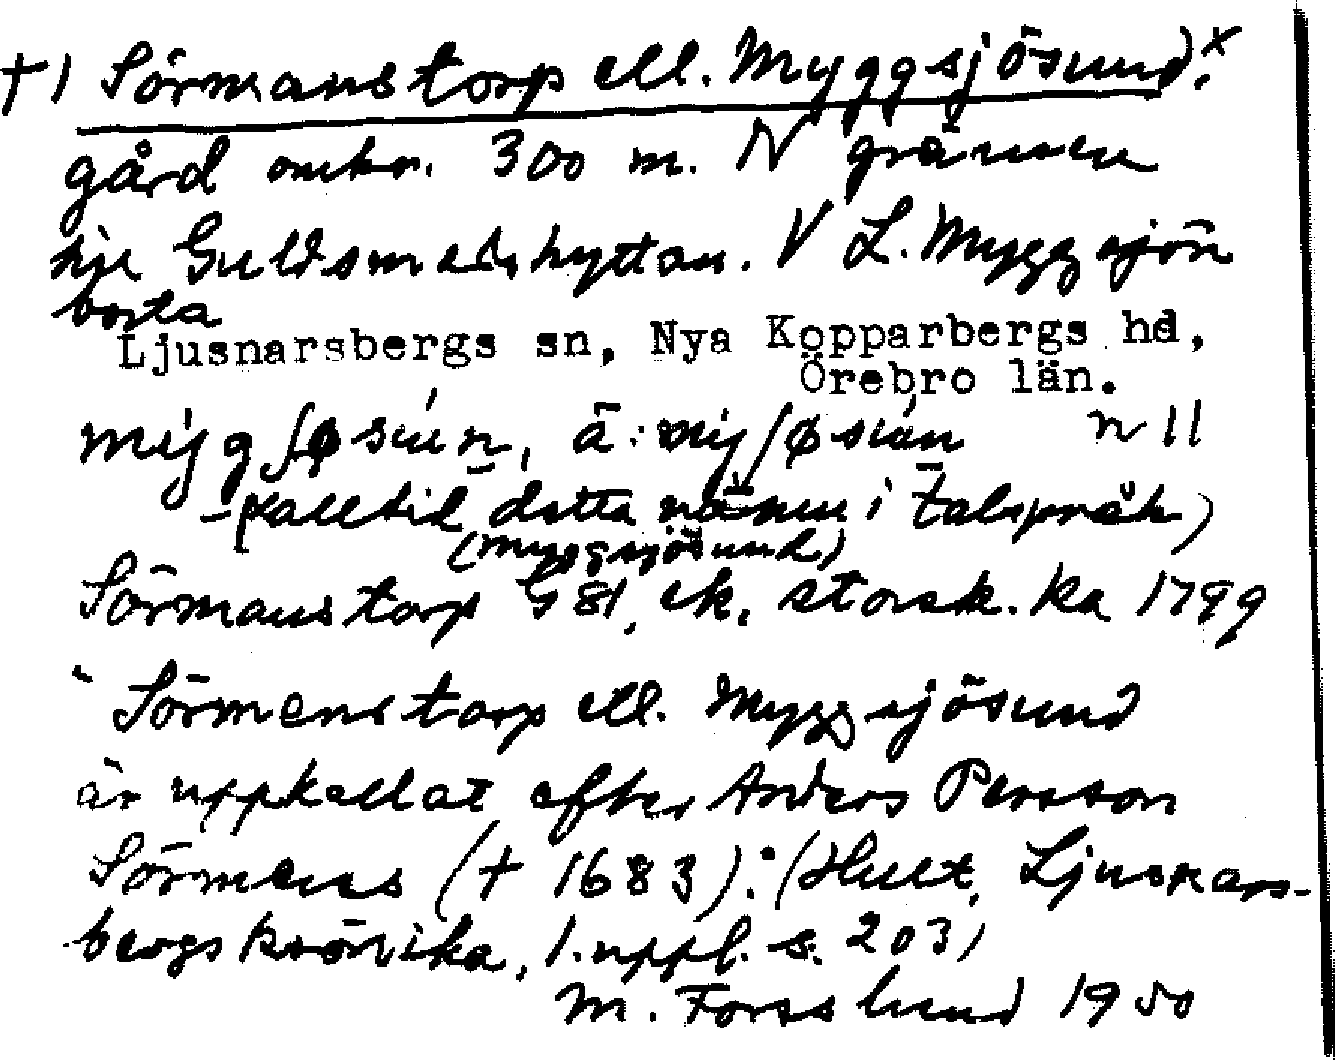 †) Sörmanstorp ell. Myggsjösund.x
gård omkr. 300 m. N gränsen
t. Guldsmedshyttan. V L. Myggsjön
borta
Ljusnarsbergs sn, Nya Kopparbergs hd,
Örebro län.
n 11
x alltid detta namn i talspråk)
(Myggsjösund)
Sörmanstorp G 81, ek. storsk. ka 1799
" Sörmanstorp ell. Myggsjösund
är uppkallat efter Anders Persson
Sörmans († 1683)." (Hult, Ljusnars-
bergskrönika, 1. uppl. s. 203)
M. Forsslund 1950